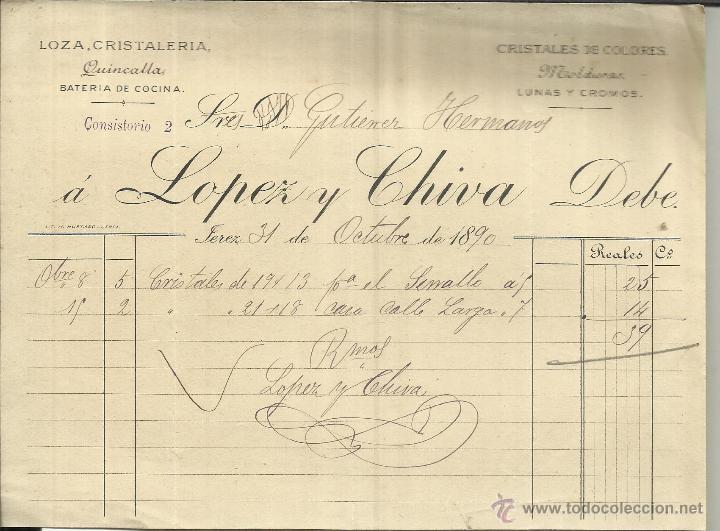 LOZA, CRISTALERIA,
Quincalla,
BATERIA DE COCINA.
CRISTALES DE COLORES.
Molduras.
LUNAS Y CROMOS.
Consistorio 2
Sres D. Gutierrez Hermanos
á Lopez y Chiva Debe.
Jerez 31 de Octubre de 1890
Reales Cs
Obre 8 5 Cristales de 19 x 13 pa el Serrallo a 5 25
15 2 " " 21 x 18 casa calle Larga " 7 14
39
Rmos
Lopez y Chiva
www.todocoleccion.net